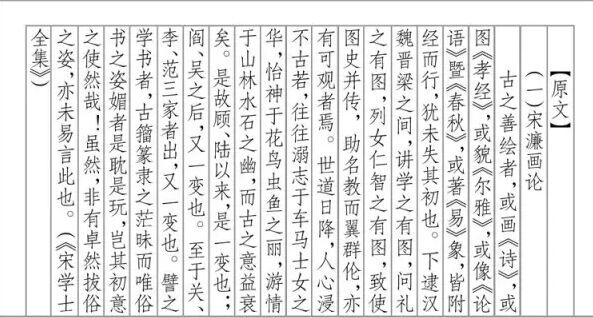 【原文】
(一)宋濂画论
古之善绘者,或画《诗》,或
图《孝经》,或貌《尔雅》,或像《论
语》暨《春秋》,或著《易》象,皆附
经而行,犹未失其初也。下逮汉
魏晋梁之间,讲学之有图,问礼
之有图,列女仁智之有图,致使
图史并传,助名教而翼群伦,亦
有可观者焉。世道日降,人心浸
不古若,往往溺志于车马士女之
华,怡神于花鸟虫鱼之丽,游情
于山林水石之幽,而古之意益衰
矣。是故顾、陆以来,是一变也;
阎、吴之后,又一变也。至于关、
李、范三家者出,又一变也。譬之
学书者,古籀篆隶之茫昧而唯俗
书之姿媚者是耽是玩,岂其初意
之使然哉!虽然,非有卓然拔俗
之姿,亦未易言此也。(《宋学士
全集》)